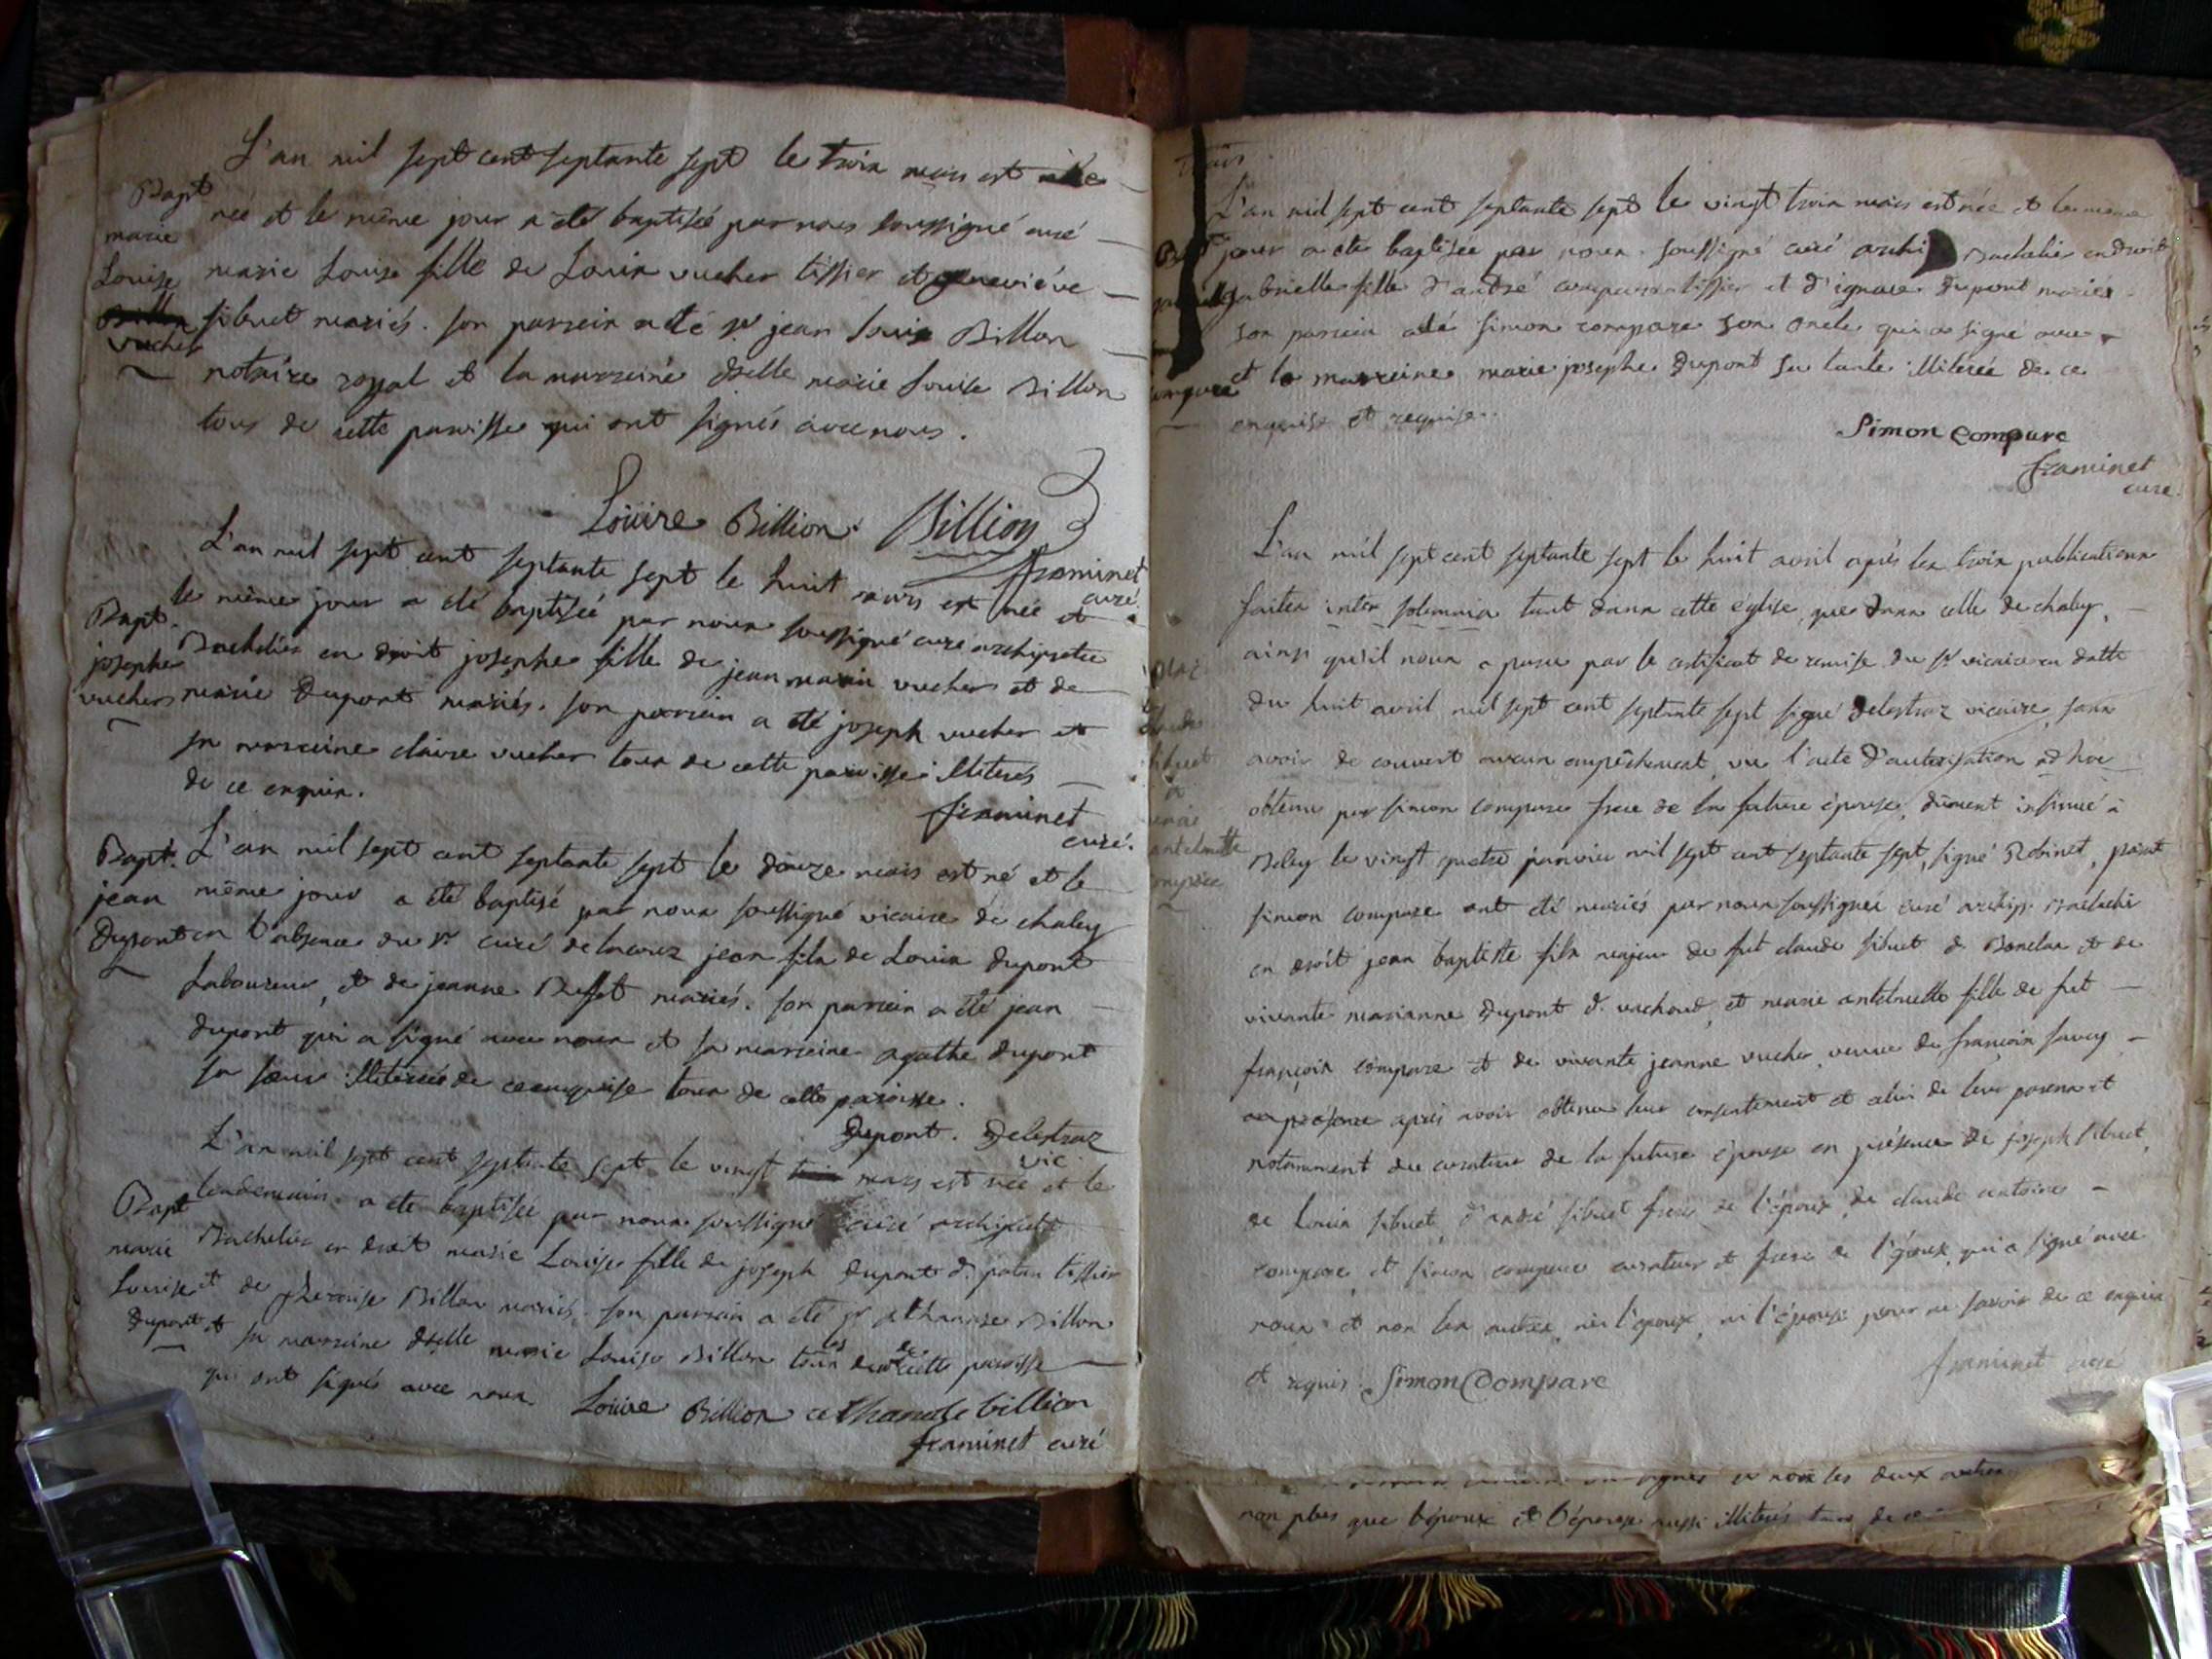 L'an mil sept cent septante sept le trois mars est
Bapt née et le même jour a été baptisée par nous soussigné curé
marie Louise marie Louise fille de Louis vucher tissier et geneviéve
vucher sibuet mariés. son parrein a été sr jean Louis Billon
notaire royal et la marreine dselle marie Louise Billon
tous de cette paroisse qui ont signés avec nous.
Louise Billion. Billion
framinet curé.
L'an mil sept cent septante sept le huit mars est née et
Bapt. le même jour a été baptisée par nous soussigné curé archiprêtre
josephe Bachelier en droit josephe fille de jean marin vucher et de
vucher marie Dupont mariés. son parrein a été joseph vucher et
sa marreine claire vucher tous de cette paroisse illiterés
de ce enquis.
framinet curé.
Bapt. L'an mil sept cent septante sept le douze mars est né et le
jean même jour a été baptisé par nous soussigné vicaire de chaley
Dupont en l'absence du sr curé jean fils de Louis Dupont
Laboureur, et de jeanne mariés. son parrein a été jean
Dupont qui a signé avec nous et sa marreine agathe Dupont
sa soeur illiterée de ce enquise tous de cette paroisse.
Dupont. Delestraz vic.
L'an mil sept cent septante sept le vingt mars est née et le
Bapt lendemain a été baptisée par nous soussigné curé archiprêtre
marie Bachelier en droit marie Louise fille de joseph Dupont d. tissier
Louise et de Billon mariés. son parrein a été sr athanase Billon
Dupont et sa marreine dselle marie Louise Billon tous de cette paroisse
qui ont signés avec nous.
Louise Billion athanase billion
framinet curé
L'an mil sept cent septante sept le vingt trois mars est née et le même
jour a été baptisée par nous soussigné curé archi Bachelier en droit
gabrielle fille d'andré compare tissier et d'ignace Dupont mariés.
son parrein a été simon compare son oncle qui a signé avec
compare et la marreine marie josephe Dupont sa tante illiterée de ce
enquise et requise.
Simon Compare
framinet curé.
L'an mil sept cent septante sept le huit avril aprés les trois publications
faites inter solemnia tant dans cette église, que dans celle de chaley,
ainsi qu'il nous a paru par le certificat de remise du sr vicaire en datte
du huit avril mil sept cent septante sept signé Delestraz vicaire, sans
avoir de couvert aucun empêchement, vu l'acte d'autorisation ad hoc
obtenu par simon compare frere de la future épouse, dûment insinué à
Beley le vingt quatre janvier mil sept cent septante sept, signé Robinet,
simon compare ont été mariés par nous soussigné curé archip. Bachelier
en droit jean baptiste fils majeur de fut claude sibuet d. et de
vivante marianne Dupont d. vachoud, et marie antelmette fille de fut
françois compare et de vivante jeanne vucher, veuve de françois
aprés avoir obtenu leur consentement et celui de leur parens et
notamment du curateur de la future épouse en présence de joseph sibuet,
de Louis sibuet, d'andré sibuet frere de l'époux, de claude antoine
compare, et simon compare curateur et frere de l'épouse, qui a signé avec
nous et non les autres, ni l'époux, ni l'épouse pour ne savoir de ce enquis
et requis. Simon Compare
framinet curé
les deux autres
non plus que l'époux et l'épouse aussi illiterés